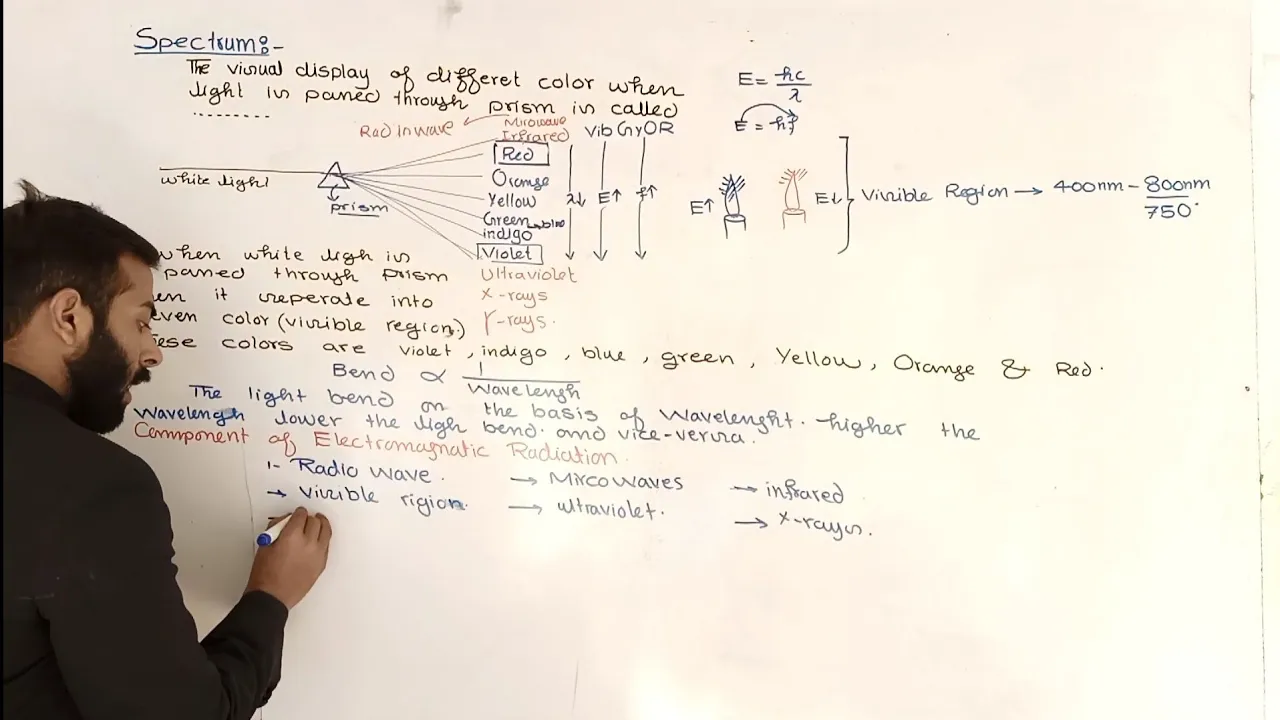 Spectrum:-
The visual display of differet color when
light is passed through prism is called
.........
E= hc/λ
E = hf
Radio wave
Microwave
Infrared
VibGyOR
Red
Orange
Yellow
Green → blue
indigo
Violet
Ultraviolet
X-rays
γ-rays.
white light
prism
λ↓ E↑ f↑
E↑
E↓
Visible Region → 400nm - 800nm
750
when white ligh is
passed through prism
en it seperate into
even color (visible region.)
ese colors are violet, indigo, blue, green, Yellow, Orange & Red.
Bend ∝ 1/Wavelengh
The light bend on the basis of Wavelenght. higher the
Wavelengh lower the ligh bend. and vice-versa.
Component of Electromagnatic Radiation.
1- Radio wave. → Mircowaves → infrared
→ visible rigion. → ultraviolet. → x-rays.